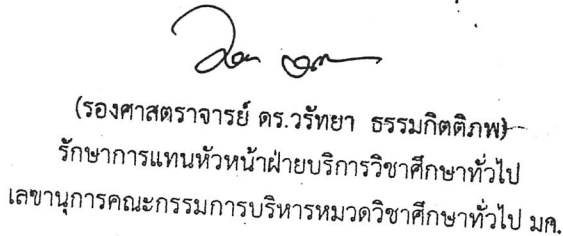 (รองศาสตราจารย์ ดร.วรัทยา ธรรมกิตติภพ)
รักษาการแทนหัวหน้าฝ่ายบริการวิชาศึกษาทั่วไป
เลขานุการคณะกรรมการบริหารหมวดวิชาศึกษาทั่วไป มก.